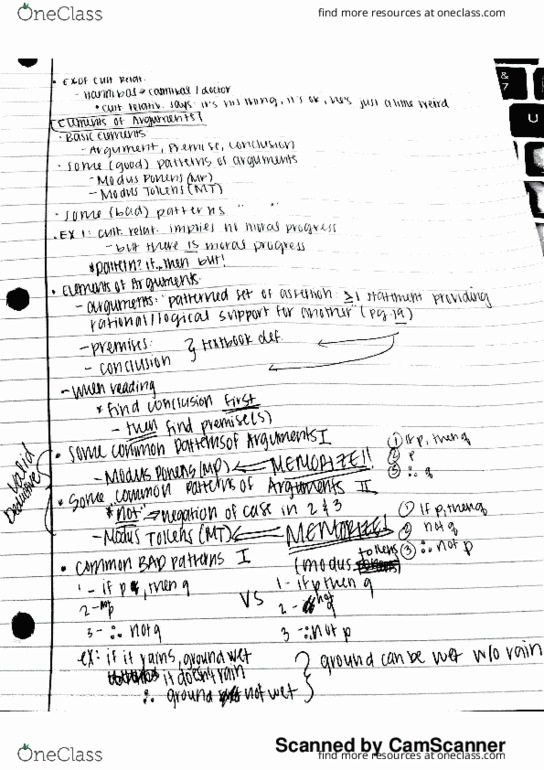 OneClass
find more resources at oneclass.com
& 7
U
• EX OF Cult Relat.
- Hannibal → cannibal / doctor
• cult relativ. says: it's his thing, it's ok, he's just a little weird
Elements of Arguments
• Basic Elements
- Argument, Premise, Conclusion
• some (good) patterns of arguments
- Modus Ponens (MP)
- Modus Tollens (MT)
• some (bad) patterns " "
• EX 1: cult relat. implies no moral progress
- but there is moral progress
* pattern? if...then but!
• Elements of Arguments
- arguments: "patterned set of assertion ≥1 statement providing
rational/logical support for another" (pg.19)
- premises: } textbook def.
- conclusion
- when reading
* find conclusion first
- then find premise(s)
valid Deductives
• some common patterns of Arguments I
① if p, then q
- Modus Ponens (MP) ← MEMORIZE!!
② p
③ ∴ q
* Some common patterns of Arguments II
* "not" → negation of case in 2 & 3
① if p, then q
- Modus Tollens (MT) ← MEMORIZE!
② not q
③ ∴ not p
• common BAD patterns I
(modus tollens
1- if p, then q
1- if p then q
2- not p
VS
2- not q
3- ∴ not q
3 - ∴ not p
ex: if it rains, ground wet
it doesn't rain
} ground can be wet w/o rain
∴ ground not wet
OneClass
Scanned by CamScanner
find more resources at oneclass.com